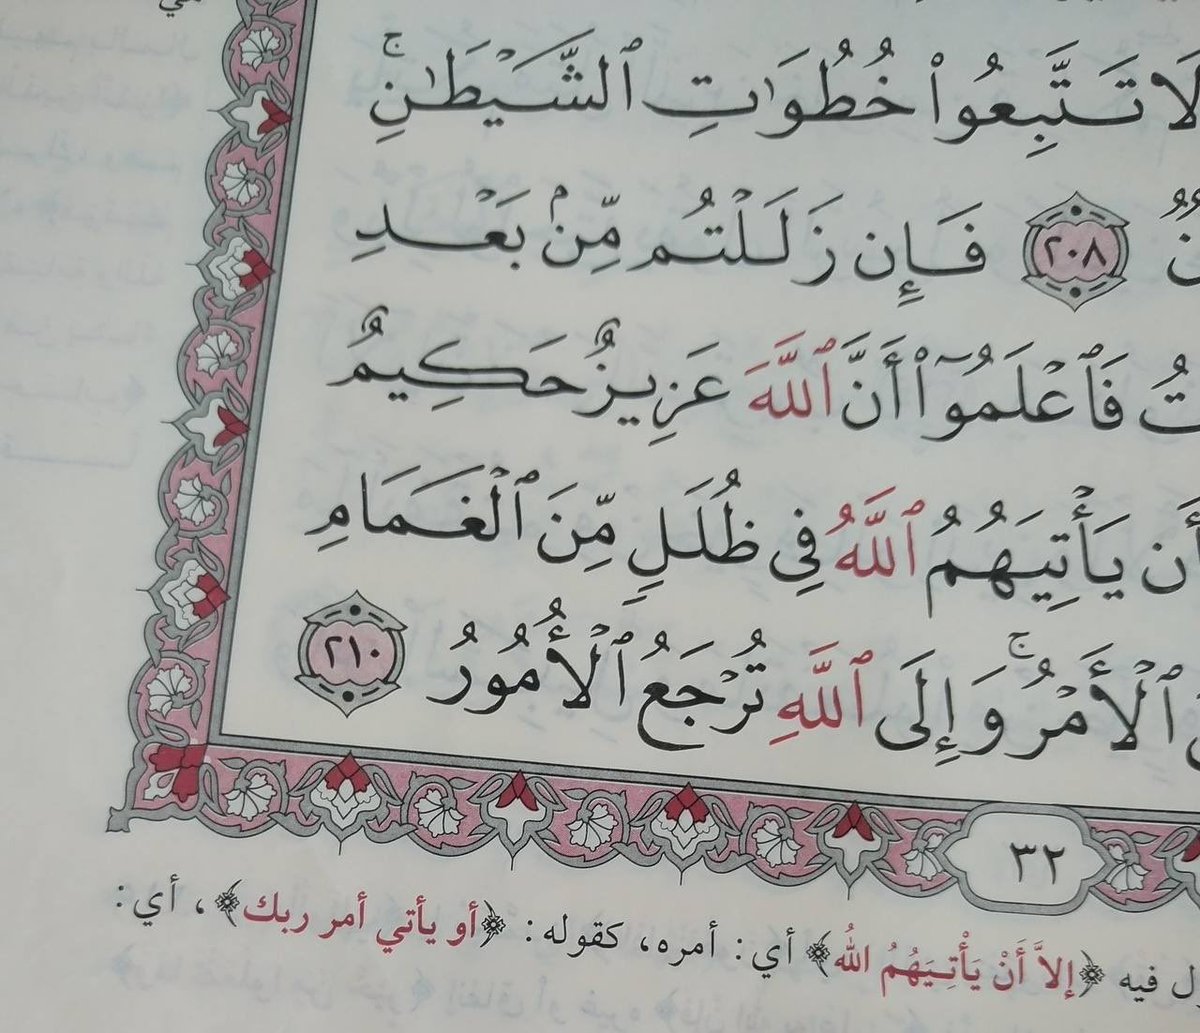 لَا تَتَّبِعُوا۟ خُطُوَٰتِ ٱلشَّيْطَـٰنِ ۚ
٢٠٨ فَإِن زَلَلْتُم مِّنۢ بَعْدِ
فَٱعْلَمُوٓا۟ أَنَّ ٱللَّهَ عَزِيزٌ حَكِيمٌ
أَن يَأْتِيَهُمُ ٱللَّهُ فِي ظُلَلٍ مِّنَ ٱلْغَمَامِ
ٱلْأَمْرُ ۚ وَإِلَى ٱللَّهِ تُرْجَعُ ٱلْأُمُورُ ٢١٠
٣٢
فيه ﴿إلاَّ أَنْ يَأْتِيَهُمُ اللهُ﴾ أي: أمره، كقوله: ﴿أو يأتي أمر ربك﴾، أي: